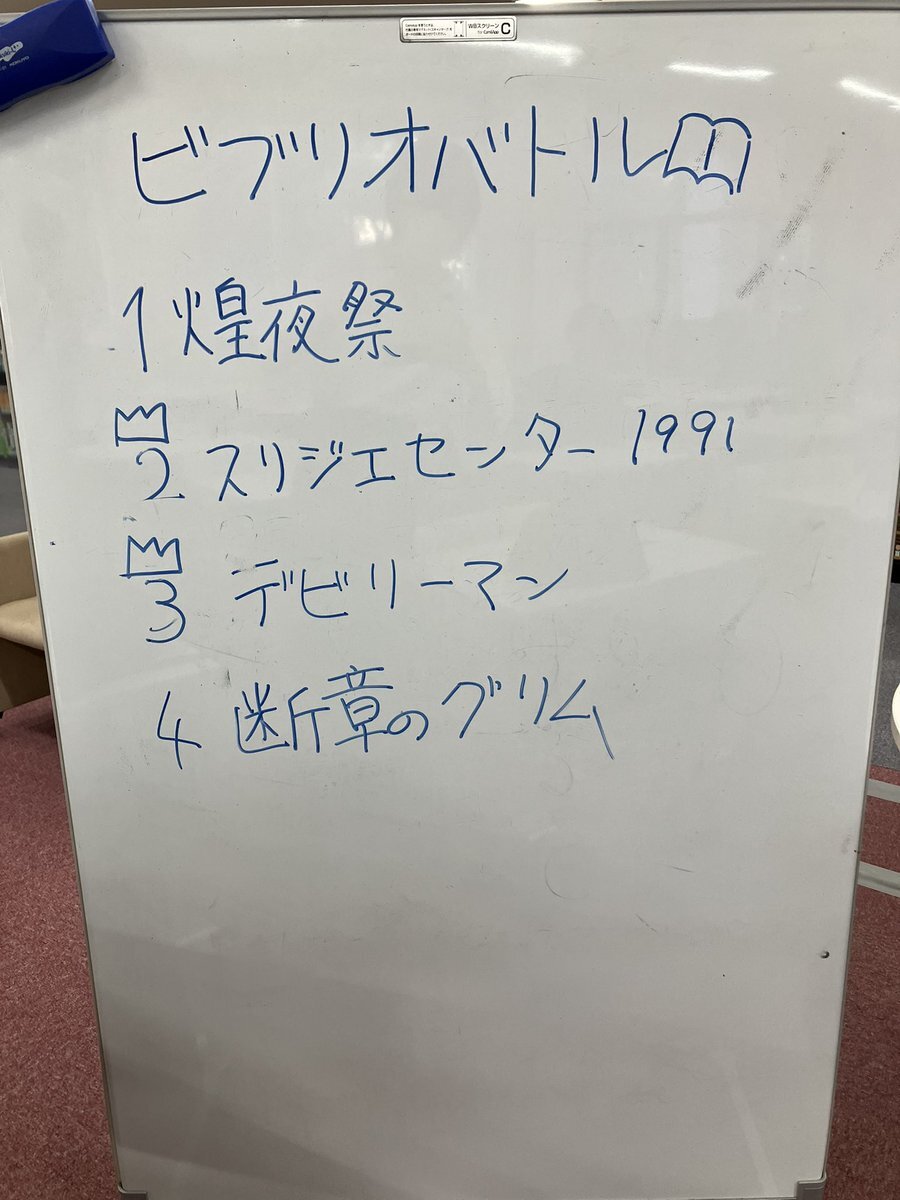 WBスクリーン
for CamiApp
C
ビブリオバトル
1 煌夜祭
2 スリジエセンター 1991
3 デビリーマン
4 断章のグリム